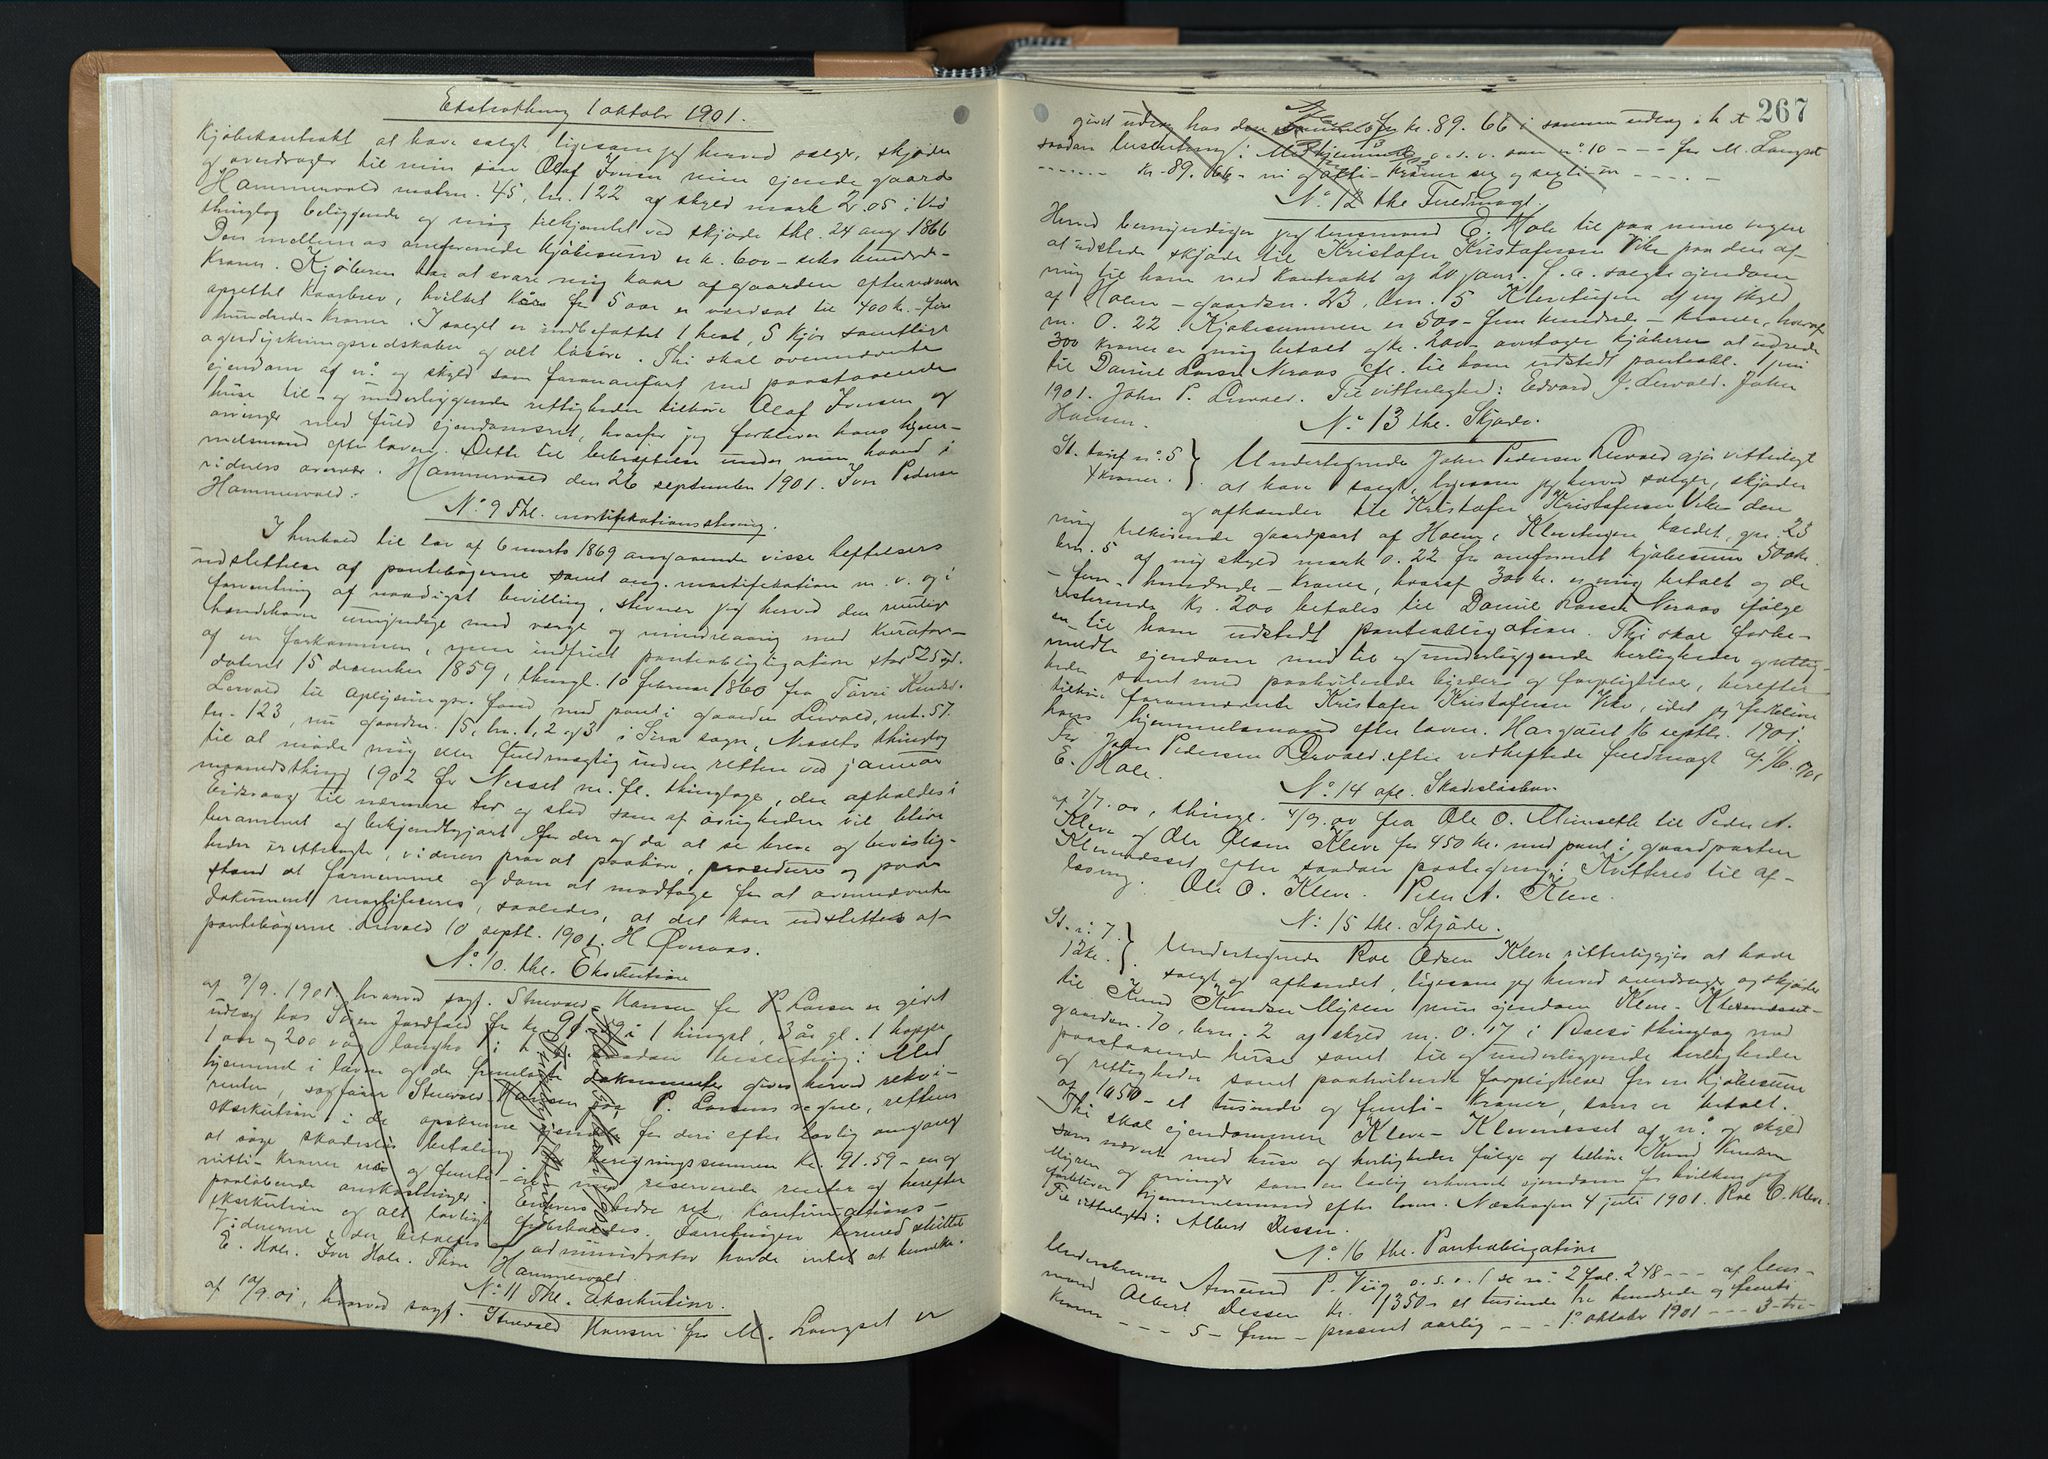 Ekstrathing 1 oktober 1901.
Kjøbekontrakt at have solgt ligesom jeg herved sælger, skjøder
og overdrager til min søn Olaf Iversen min eiende gaard
Hammervold matrn. 45, brn. 122 af skyld mark 2.05 i Vod
thinglag beliggende og mig tilhjemlet ved skjøde thl. 24 aug 1866
Den mellem os omforenede kjøbesum er kr. 600 – seks hundrede –
kroner. Kjøberen har at svare mig kaar af gaarden efter
oprettet kaarbrev, hvilket kår for 5 aar er værdsat til 400 kr. – fire
hundrede – kroner. I salget er indbefattet 1 hest, 5 kjør samtlige
agerdyrkningsredskaber og alt løsøre. Thi skal ovennævnte
eiendom af n.º og skyld som foran anført med paastaaende
huse til- og underliggende rettigheder tilhøre Olaf Iversen og
arvinger med fuld eiendomsret, hvorfor jeg forbliver hans hjem-
melsmand efter loven. Dette til bekræftelse under min haand i
vidners overvær. Hammervold den 26 september 1901. Iver Pedersen
Hammervold.
N.º 9 Thl. mortifikationsstevning.
I henhold til lov af 6 marts 1869 angaaende visse heftelsers
udslettelse af pantebøgerne samt ang. mortifikation m. v. og i
forventning af naadigst bevilling, stevner jeg herved den mulige
hændehaver umyndige med værge og mindreaarig med kurator
af en forkommen, men indfriet panteobligation stor 525 spd.
dateret 15 december 1859, thingl. 10 februar 1860 fra Tørris Knudsen
Lervold til Oplysningsv. fond med pant i gaarden Lervold, mt. 57
ln. 123, nu gaardsn. 15, brn. 1, 2 og 3 i Sira sogn, Nessets thinglag
til at møde mig eller fuldmægtig inden retten ved januar
maanedsthing 1902 for Nesset m. fl. thinglage, der afholdes i
Eidsvaag til nærmere tid og sted som af øvrigheden vil blive
berammet og bekjendtgjort for der og da at se breve og bevislig-
heder irettelagte, vidners prov at paahøre, procedure og paa-
stand at fornemme og dom at modtage for at ovennævnte
dokument mortificeres, saaledes, at det kan udslettes af
pantebøgerne. Lervold 10 septb. 1901. H Øveraas.
N.º 10. thl. Eksekution
af 9/9. 1901, hvorved sagf. Stuevold-Hansen for P. Larsen er givet
udlæg hos Søren Jordfald for kr. 91.59 i 1 hingst, 3 år gl. 1 hoppe
1 aar og 200 vog langhø i h. t. saadan beslutning: Med
hjemmel i loven og de fremlagte dokumenter gives herved rekvi-
renten sagfører Stuevold-Hansen for P. Larsens regne, rettens
eksekution i de opskrevne gjenstande for deri efter lovlig omgang
at søge skadesløs betaling for kravssummen kr. 91.59 – en og
nitti – kroner ni og femti – øre med reserverede renter og herefter
paaløbende omkostninger. Enhvers bedre ret, kontinuations-
eksekution og alt lovligt forbeholdes. Forretningen hermed sluttet.
Vidnerne, der betales af administrator havde intet at bemærke.
E. Hole. Iver Hole. Thore Hammervold.
N.º 11 Thl. Eksekution.
af 10/9.01, hvorved sagf. Stuevold Hansen for M. Langset er
267
givet udlæg hos den samme for kr. 89.66 i samme udlæg i h. t.
saadan beslutning: Med hjemmel o. s. v. som n.º 10 – – – for M. Langset
– – – – kr. 89.66 – ni og otti – kroner sex og sexti øre – – – –
N.º 12 thl. Fuldmagt.
Herved bemyndiger jeg lensmand E. Hole til paa mine vegne
at udstede skjøde til Kristofer Kristofersen Vike paa den af
mig til ham ved kontrakt af 20 janr. f. a. solgte eiendom
af Hoem – gaardsn. 23, brn. 5 Klevehugen af ny skyld
m. 0.22 Kjøbesummen er 500 – fem hundrede – kroner, hvoraf
300 kroner er mig betalt og kr. 200 overtager kjøberen at udrede
til Daniel Larsen Neraas ifl. til ham udstedt panteobl. 1 juni
1901. John P. Lervold. Til vitterlighed: Edvard J. Lervold. John
Hansen.
N.º 13 thl. Skjøde.
St. brief n.º 5
4 kroner.
Undertegnede John Pedersen Lervold gjør vitterligt
at have solgt, ligesom jeg herved sælger, skjøder
og afhænder til Kristofer Kristofersen Vike den
mig tilhørende gaardpart af Hoem, Klevehugen kaldet, gno. 23
brn. 5 af ny skyld mark 0.22 for omforenet kjøbesum 500 kr.
– fem – hundrede – kroner, hvoraf 300 kr. er mig betalt og de
resterende kr. 200 betales til Daniel Larsen Neraas ifølge
en til ham udstedt panteobligation. Thi skal forbe-
meldte eiendom med til og underliggende herligheder og rettig-
heder samt med paahvilende byrder og forpligtelser, herefter
tilhøre forannævnte Kristofer Kristofersen Vike, idet jeg forbliver
hans hjemmelsmand efter loven. Hargaut 16 septbr. 1901.
For John Pedersen Lervold efter vedheftede fuldmagt af 1/6. 1901
E. Hole.
N.º 14 afl. Skadesløsbrev
af 7/7.00, thingl. 4/9.00 fra Ole O. Mirseth til Peder A.
Kleve og Ole Olsen Kleve for 450 kr. med pant i gaardparten
Klevenesset efter saadan paategning: Kvitteres til af-
læsning. Ole O. Kleve. Peder A. Kleve.
N.º 15 thl. Skjøde.
St. n. 7.
12 kr.
Undertegnede Roe Odsen Kleve vitterliggjør at have
solgt og afhændet, ligesom jeg herved overdrager og skjøder
til Knud Knudsen Myren min eiendom Kleve – Klevenesset
gaardsn. 70, brn. 2 af skyld m. 0.17 i Bolsø thinglag med
paastaaende huse samt til og underliggende herligheder
og rettigheder samt paahvilende forpligtelser for en kjøbesum
af 1050 – et tusinde og femti – kroner, som er betalt.
Thi skal eiendommen Kleve – Klevenesset af n.º og skyld
som nævnt med huse og herligheder følge og tilhøre Knud Knudsen
Myren og arvinger som en lovlig erhvervet eiendom for hvilken jeg
forbliver hjemmelsmand efter loven. Næshagen 4 juli 1901. Roe O. Kleve.
Til vitterlighed: Albert Dessen.
N.º 16 thl. Panteobligation
Underskrevne Amund P. Viig o. s. v. (se n.º 2 fol. 248 – – – af lens-
mand Albert Dessen kr. 1350 – et tusinde tre hundrede og femti
kroner – – – 5 – fem – procent aarlig – – – 1.º oktober 1901 – – – 3 – tre –